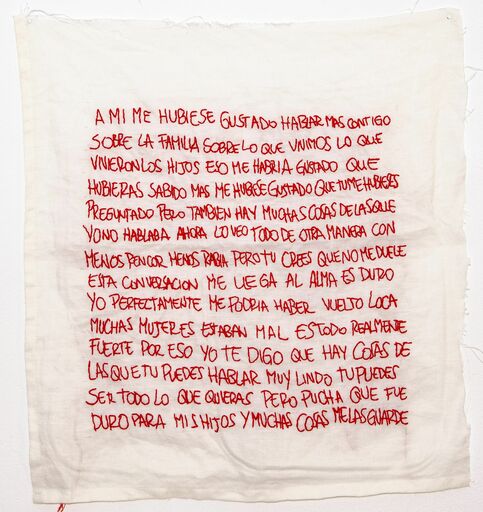 A MI ME HUBIESE GUSTADO HABLAR MAS CONTIGO
SOBRE LA FAMILIA SOBRE LO QUE VIVIMOS LO QUE
VIVIERON LOS HIJOS ESO ME HABRIA GUSTADO QUE
HUBIERAS SABIDO MAS ME HUBIESE GUSTADO QUE TU ME HUBIESES
PREGUNTADO PERO TAMBIEN HAY MUCHAS COSAS DE LAS QUE
YO NO HABLABA AHORA LO VEO TODO DE OTRA MANERA CON
MENOS PENCOR MENOS RABIA PERO TU CREES QUE NO ME DUELE
ESTA CONVERSACION ME LLEGA AL ALMA ES DURO
YO PERFECTAMENTE ME PODRIA HABER VUELTO LOCA
MUCHAS MUJERES ESTABAN MAL ES TODO REALMENTE
FUERTE POR ESO YO TE DIGO QUE HAY COSAS DE
LAS QUE TU PUEDES HABLAR MUY LINDO TU PUEDES
SER TODO LO QUE QUIERAS PERO PUCHA QUE FUE
DURO PARA MIS HIJOS Y MUCHAS COSAS ME LAS GUARDE